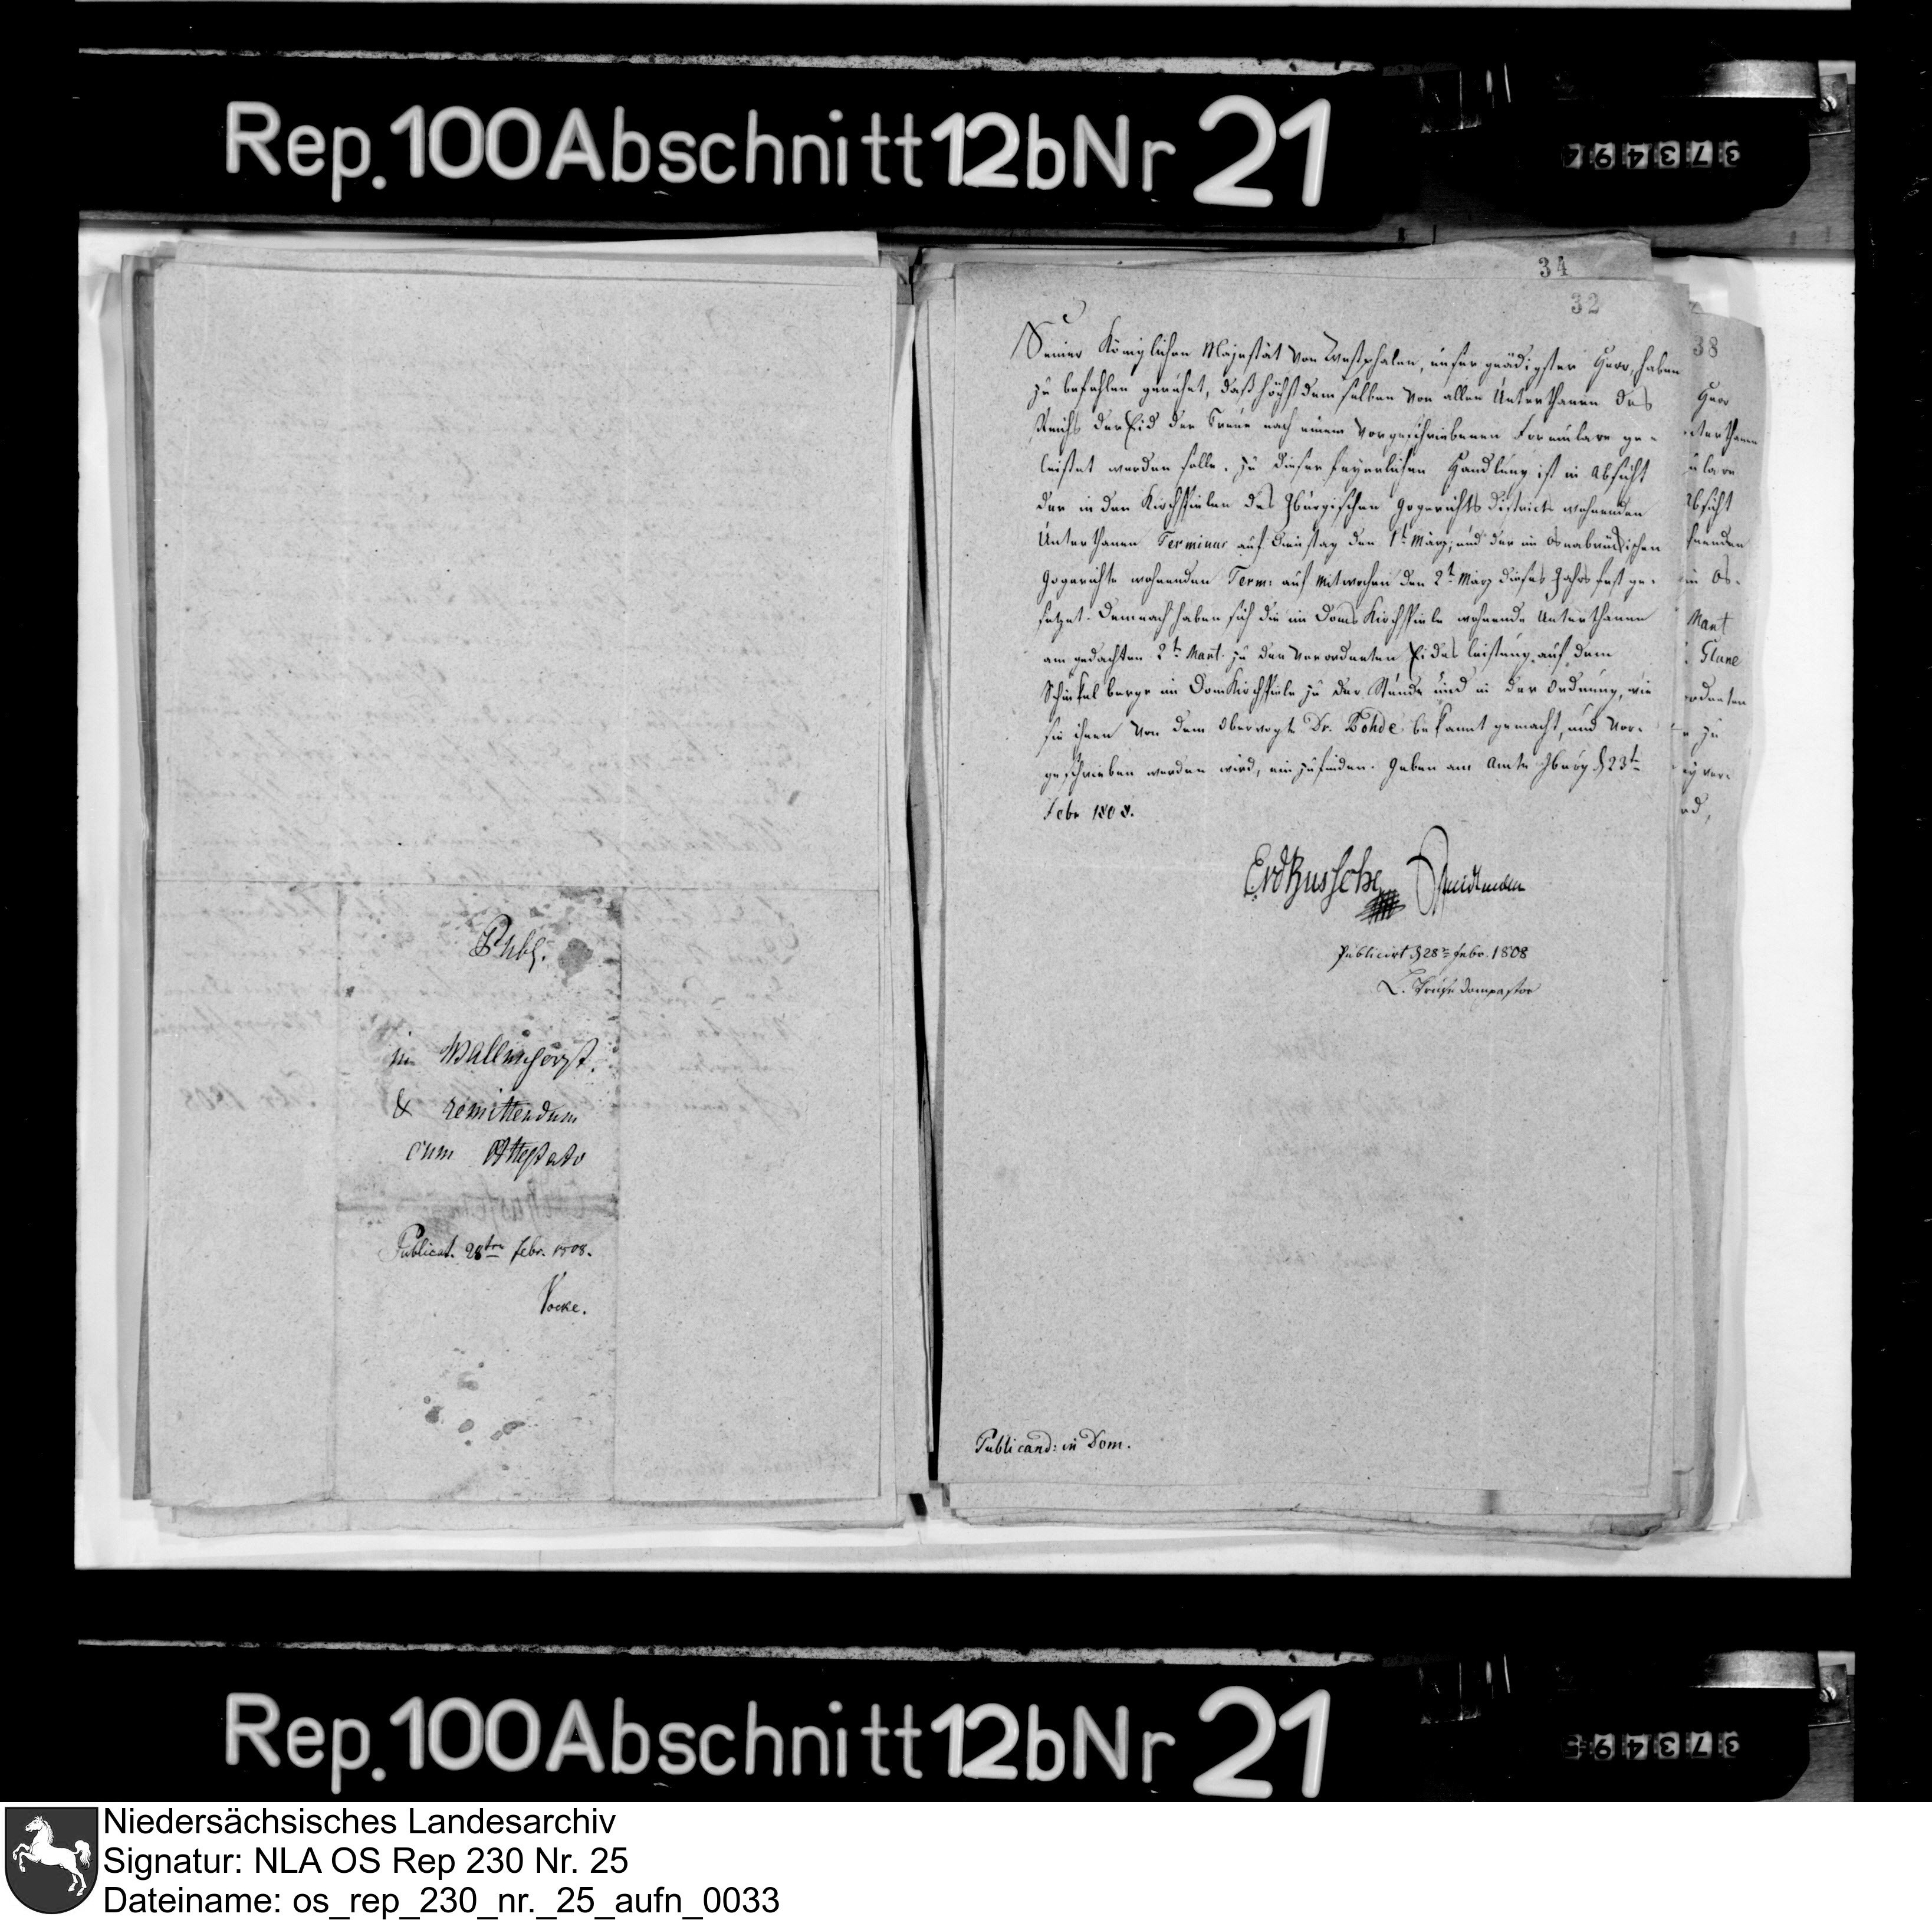 Rep. 100 Abschnitt 12b Nr 21
Publ.
in Wallenhorst.
& remittendum
cum Attestato
Publicat. 28ten febr. 1808.
Vocke.
34
32
Seiner Königlichen Majestät von Westphalen, unser gnädigster Herr, haben
zu befehlen geruhet, daß höchst demselben von allen Unterthanen des
Reichs der Eid der Treue nach einem vorgeschriebenen Formulare ge-
leistet werden solle. Zu dieser feyerlichen Handlung ist in Absicht
der in den Kirchspielen des Iburgischen Gogerichts Districts wohnenden
Unterthanen Terminus auf Dienstag den 1t März, und der im Osnabrückischen
Gogerichte wohnenden Term: auf Mitwochen den 2t März dieses Jahrs fest ge-
setzet. Demnach haben sich die im Doms Kirchspiele wohnende Unterthanen
am gedachten 2tn Mart. zu der verordneten Eides leistung auf dem
Schinkel berge im Dom Kirchspiele zu der Stunde und in der Ordnung, wie
sie ihnen von dem Obervogte Dr. Rohde bekannt gemacht, und vor-
geschrieben werden wird, einzufinden. Geben am Amte Iburg d 23tn
Febr 1808.
Publicirt d 28tn febr. 1808
dompastor
Publicand: in Dom.
38
Herr
Absicht
Mart
Glane
zu
Rep. 100 Abschnitt 12b Nr 21
Niedersächsisches Landesarchiv
Signatur: NLA OS Rep 230 Nr. 25
Dateiname: os_rep_230_nr._25_aufn_0033